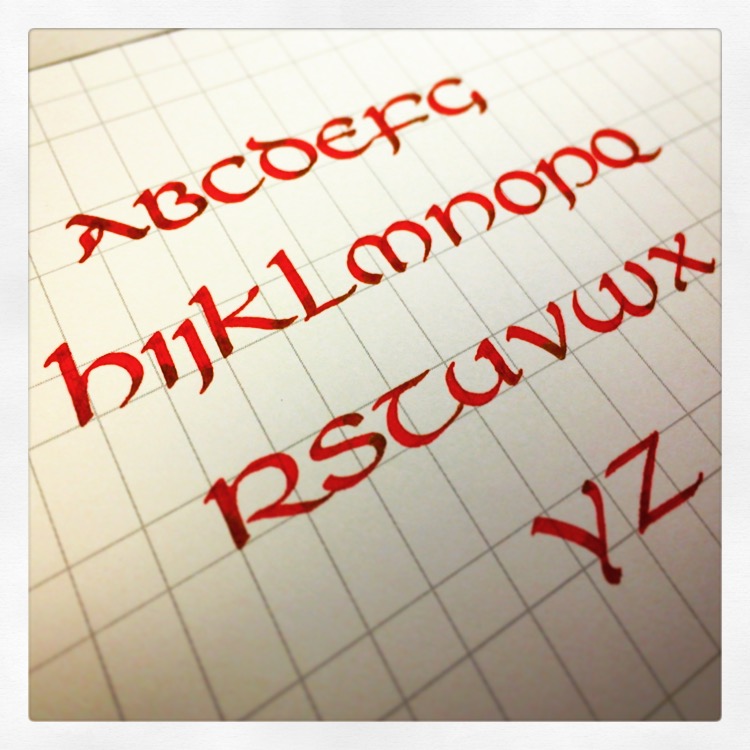 ABCDEFG
HIJKLMNOPQ
RSTUVWX
YZ